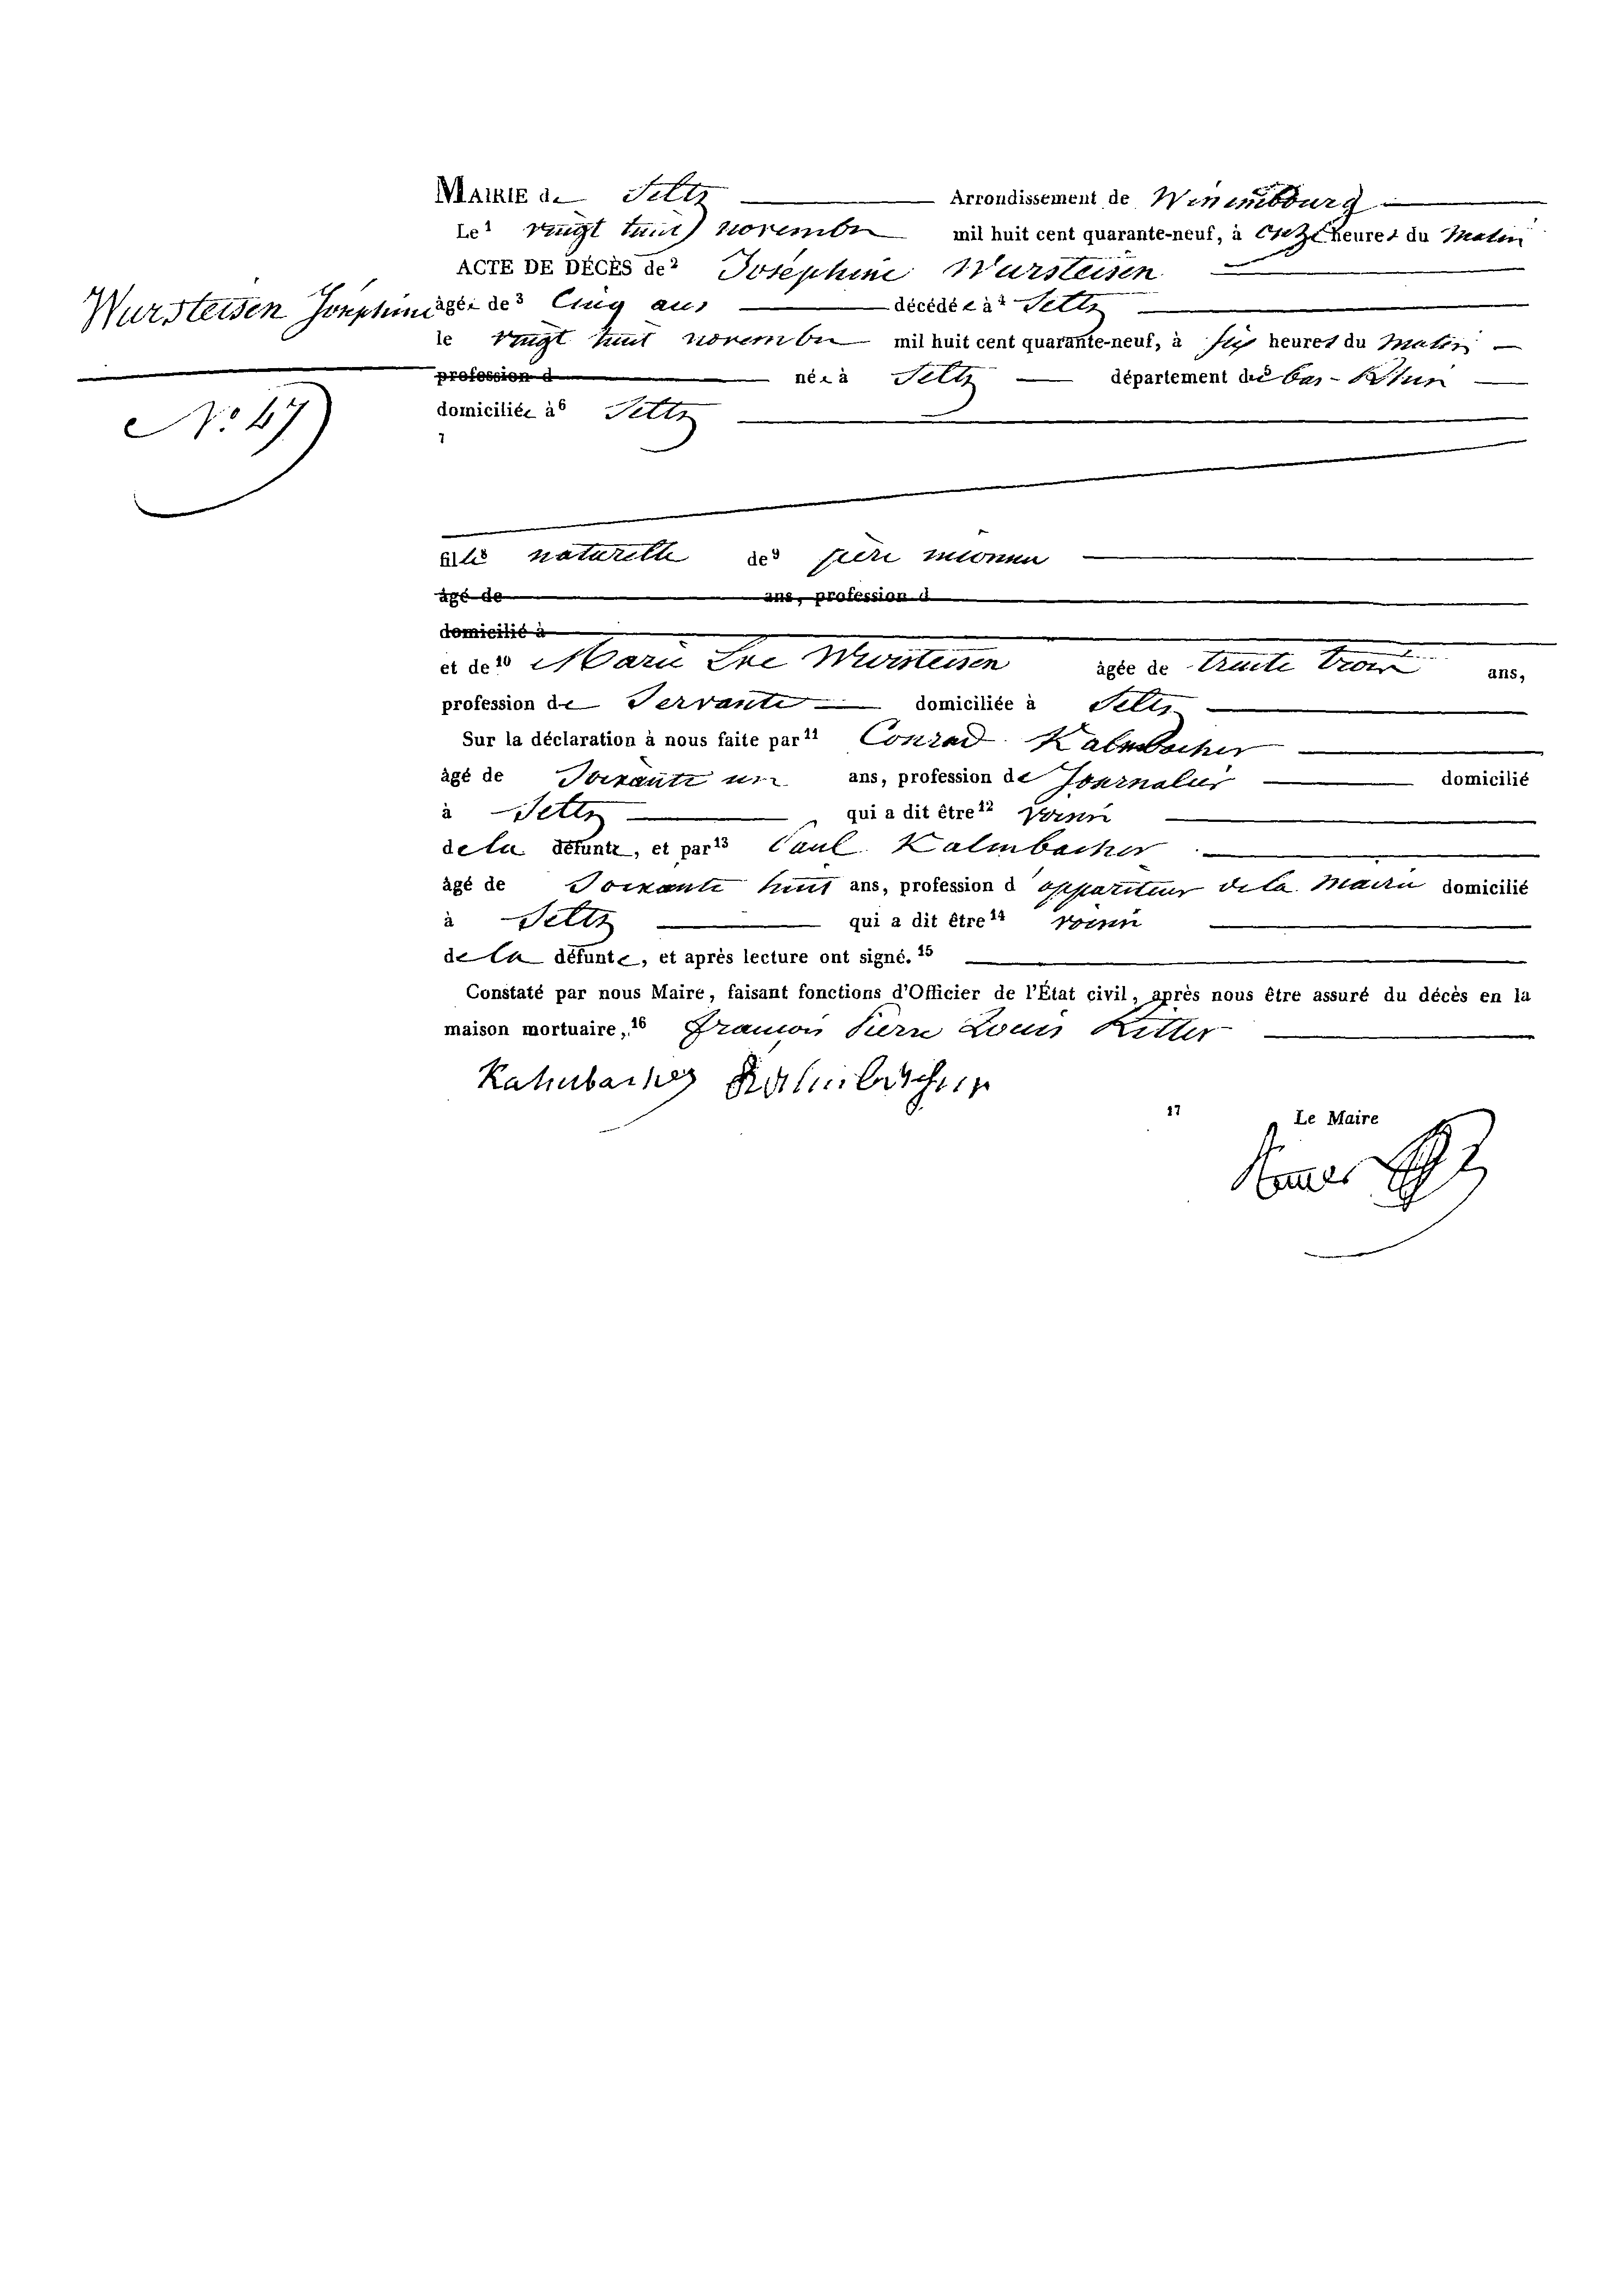 MAIRIE de Seltz Arrondissement de Wissembourg
Le 1 vingt huit novembre mil huit cent quarante-neuf, à onze heures du Matin
ACTE DE DÉCÈS de 2 Joséphine Wursteisen
Wursteisen Joséphine
âgée de 3 Cinq ans décédée à 4 Seltz
le vingt huit novembre mil huit cent quarante-neuf, à six heures du Matin
profession d née à Seltz département du bas-Rhin
N° 47
domiciliée à 6 Seltz
7
fille 8 naturelle de 9 père inconnu
âgé de ans, profession d
domicilié à
et de 10 Marie Eve Wursteisen âgée de trente trois ans,
profession de Servante domiciliée à Seltz
Sur la déclaration à nous faite par 11 Conrad Kalmbacher
âgé de Soixante un ans, profession de Journalier domicilié
à Seltz qui a dit être 12 voisin
de la défunte, et par 13 Paul Kalmbacher
âgé de Soixante huit ans, profession d'appariteur de la Mairie domicilié
à Seltz qui a dit être 14 voisin
de la défunte, et après lecture ont signé. 15
Constaté par nous Maire, faisant fonctions d'Officier de l'État civil, après nous être assuré du décès en la
maison mortuaire, 16 François Pierre Louis Ritter
Kalmbacher Kalmbacher
17 Le Maire